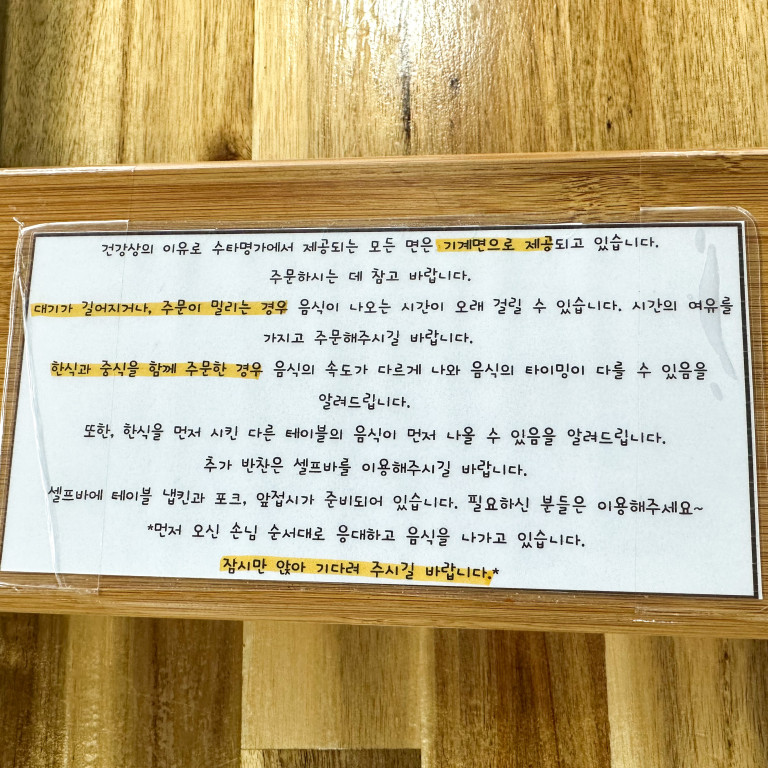 건강상의 이유로 수타명가에서 제공되는 모든 면은 기계면으로 제공되고 있습니다.
주문하시는 데 참고 바랍니다.
대기가 길어지거나, 주문이 밀리는 경우 음식이 나오는 시간이 오래 걸릴 수 있습니다. 시간의 여유를
가지고 주문해주시길 바랍니다.
한식과 중식을 함께 주문한 경우 음식의 속도가 다르게 나와 음식의 타이밍이 다를 수 있음을
알려드립니다.
또한, 한식을 먼저 시킨 다른 테이블의 음식이 먼저 나올 수 있음을 알려드립니다.
추가 반찬은 셀프바를 이용해주시길 바랍니다.
셀프바에 테이블 냅킨과 포크, 앞접시가 준비되어 있습니다. 필요하신 분들은 이용해주세요~
*먼저 오신 손님 순서대로 응대하고 음식을 나가고 있습니다.
잠시만 앉아 기다려 주시길 바랍니다.*